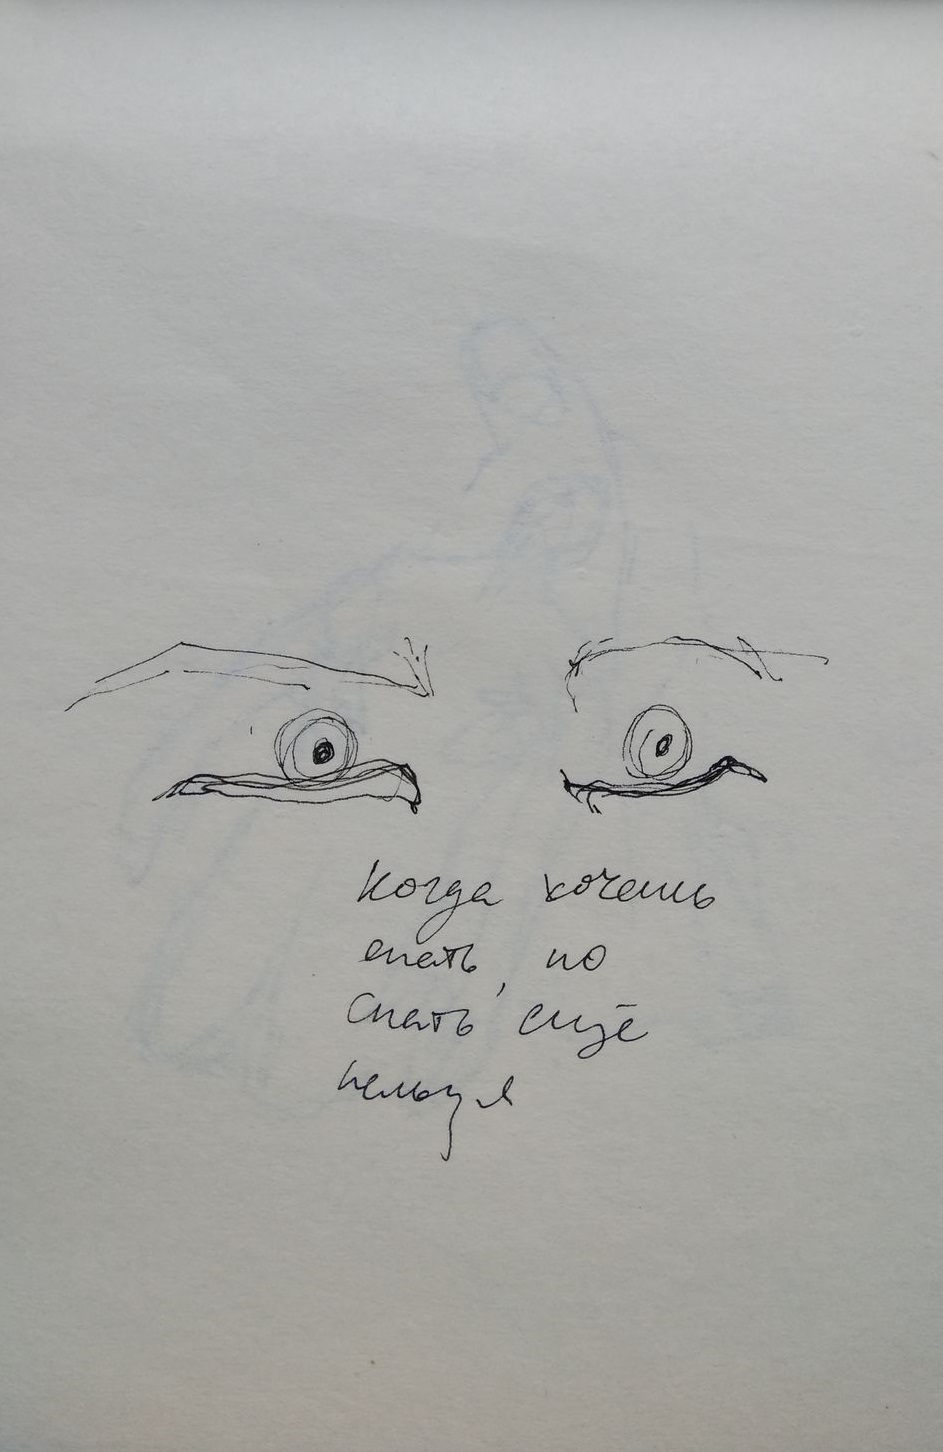 Когда хочешь
спать, но
спать ещё
нельзя